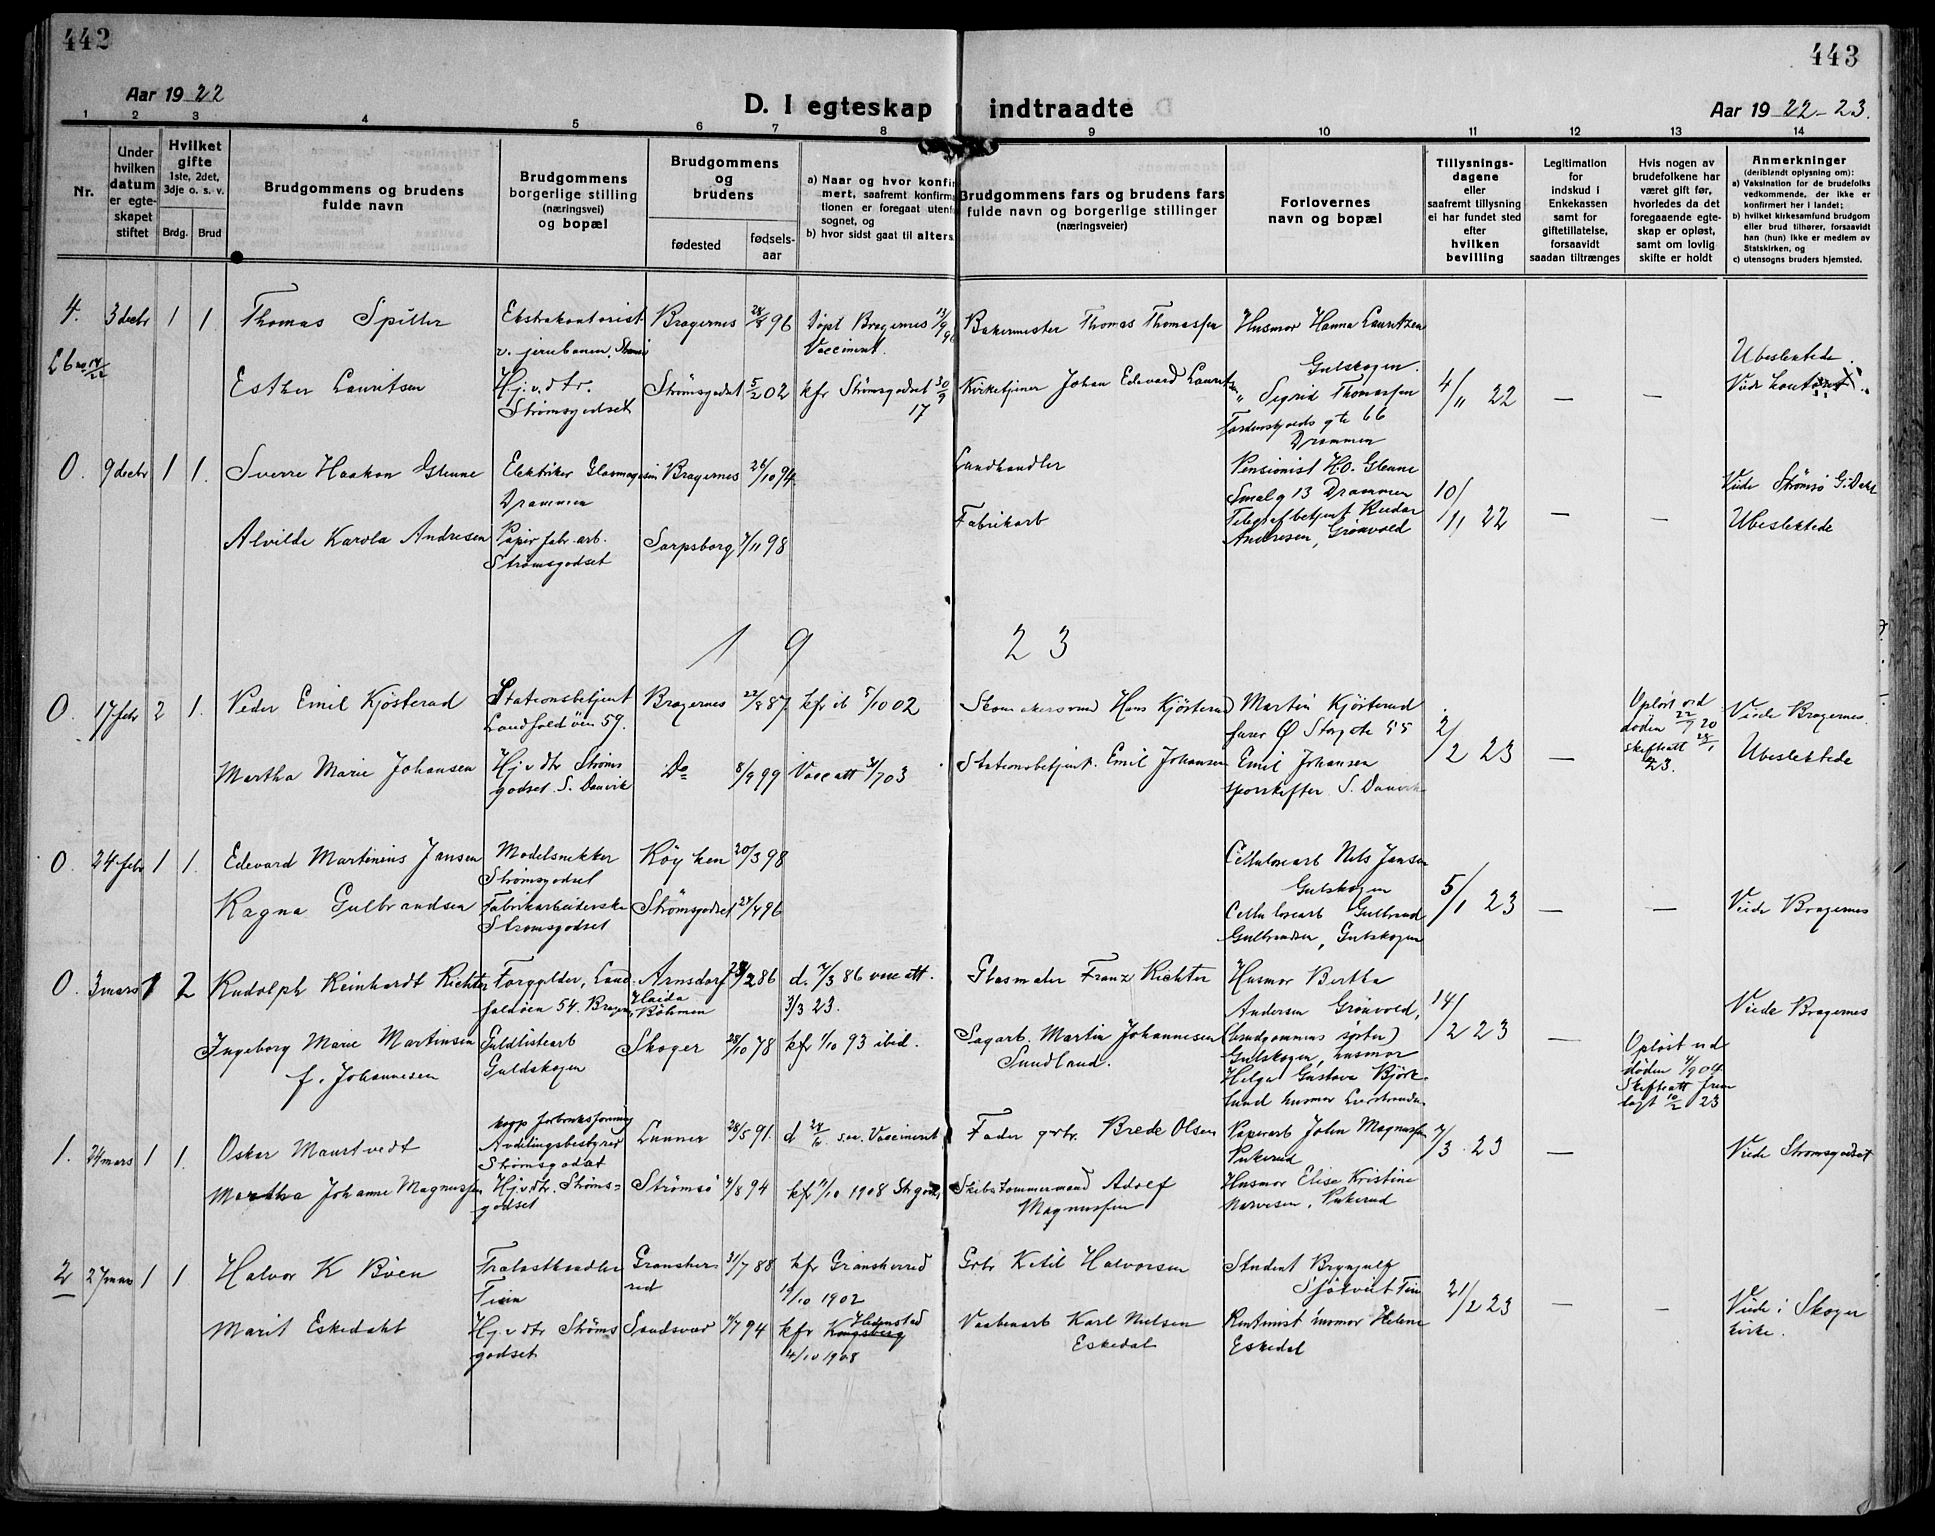 442
443
Aar 1922
D. I egteskap indtraadte
Aar 1922-23.
1 2 3 4 5 6 7 8 9 10 11 12 13 14
Nr.
Under hvilken datum er egteskapet stiftet
Hvilket gifte 1ste, 2det, 3dje o. s. v.
Brdg. Brud
Brudgommens og brudens fulde navn
Brudgommens borgerlige stilling (næringsvei) og bopæl
Brudgommens og brudens
fødested
fødsels-aar
a) Naar og hvor konfirmert, saafremt konfirmationen er foregaat utenfor sognet, og
b) hvor sidst gaat til alters.
Brudgommens fars og brudens fars fulde navn og borgerlige stillinger (næringsveier)
Forlovernes navn og bopæl
Tillysnings-dagene eller saafremt tillysning ei har fundet sted efter hvilken bevilling
Legitimation for indskud i Enkekassen samt for giftetillatelse, forsaavidt saadan tiltrænges
Hvis nogen av brudefolkene har været gift før, hvorledes da det foregaaende egteskap er opløst, samt om lovlig skifte er holdt
Anmerkninger (deriblandt oplysning om):
a) Vaksination for de brudefolks vedkommende, der ikke er konfirmert her i landet;
b) hvilket kirkesamfund brudgom eller brud tilhører, forsaavidt han (hun) ikke er medlem av Statskirken, og
c) utensogns bruders hjemsted.
4. 3 decbr 1 1. Thomas Spiller
Ekstrakontorist v. jernbanen,
Bragernes 28/8 96
Døpt Bragernes 13/9 96 Vaccinert.
Bakermester Thomas Thomassen
Husmor Hanna Lauritzen Gulskogen.
Esther Lauritsen
Hj.v.dtr. Strømsgodset
Strømsgodset 5/2 02
kfr Strømsgodset 30/9 17
Kirketjener Johan Edevard
" Sigrid Thomassen
Tordenskjolds gte 66 Drammen
4/11 22 — —
Ubeslektede.
0. 9 decbr 1 1. Sverre Haakon Glenne
Elektriker Glasmagasin Drammen
Bragernes 26/10 94.
Landhandler
Pensionist H.O. Glenne Smalg 13 Drammen
Alvilde Karola Andresen
Papirfabr.arb. Strømsgodset
Sarpsborg 7/11 98
Fabrikarb
Telegrafbetjent Reidar Andresen, Grønvold
10/11 22 — —
Viede Strømsø G. Dahl
Ubeslektede
1 9 2 3
0. 17 febr 2 1. Peder Emil Kjösterud
Stationsbetjent Landfaldöen 59.
Bragernes 22/8 87
kfr ib 5/10 02
Skomakersvend Hans Kjösterud
Martin Kjösterud Ø Storgte 55
Martha Marie Johansen
Hj.v.dtr Strømsgodset. S. Danvik
Do 8/9 99
Vacc att 31/7 03
Stationsbetjent. Emil Johansen
Emil Johansen sporskifter S. Danvik
2/2 23 —
Opløst ved døden 22/7 20 skifteatt 25/1 23.
Viede Bragernes.
Ubeslektede
0. 24 febr 1 1. Edevard Martinius Jansen
Modelsnekker Strømsgodset
Röyken 20/3 98
Cellulosearb Nils Jansen Gulskogen
Ragna Gulbrandsen
Fabrikarbeiderske Strømsgodset
Strømsgodset 24/4 96
Cellulosearb Gulbrand Gulbrandsen, Gulskogen
5/1 23 — —
Viede Bragernes
0. 3 mars 1 2 Rudolph Reinhardt Richter
Forgylder, Landfaldöen 54. Bragernes
Arnsdorf Haida Böhmen 28/2 86
d. 7/3 86 vacc att. 3/3 23.
Glasmaler Franz Richter
Husmor Bertha Andersen Grönvold, (brudgommens søster)
Ingeborg Marie Martinsen f. Johannesen
Guldlistearb Guldskogen
Skoger 28/10 78
kfr 1/10 93 ibid.
Sagarb. Martin Johannesen Sundland.
Gulskogen, husmor Helga Gustava Björklund husmor Lierstranden
14/2 23 —
Opløst ved døden 4/9 04 Skifteatt fremlagt 10/2 23
Viede Bragernes
1. 24 mars 1 1. Oskar Maurtvedt
Avdelingsbestyrer Strømsgodset
Lunner 28/5 91.
d 28/6 s.a. Vaccinert
Fader grbr. Brede Olsen
Papirarb John Magnussen Pukerud
Martha Johanne Magnussen
Hj.v.dtr. Strømsgodset
Strømsö 4/8 94
kfr 11/10 1908
Skibstømmermand Adolf Magnussen
Husmor Elise Kristine Narvesen, Pukerud
7/3 23 —
Viede Strømsgodset
2 27 mars 1 1 Halvor K Böen
Trælasthandler Tinn
Gransherred 31/7 88
kfr Gransherred 19/10 1902
Grbr Ketil Halvorsen
Student Brynjulf Sjötveit Tinn
Marit Eskedahl
Hj.v.dtr Strømsgodset
Sandsvær 7/7 94
kfr Kongsberg Hedenstad 4/10 1908
Vaabenarb Karl Nielsen Eskedal
Rentenist mormor Helene Eskedal
21/2 23 — —
Viede i Skoger kirke.